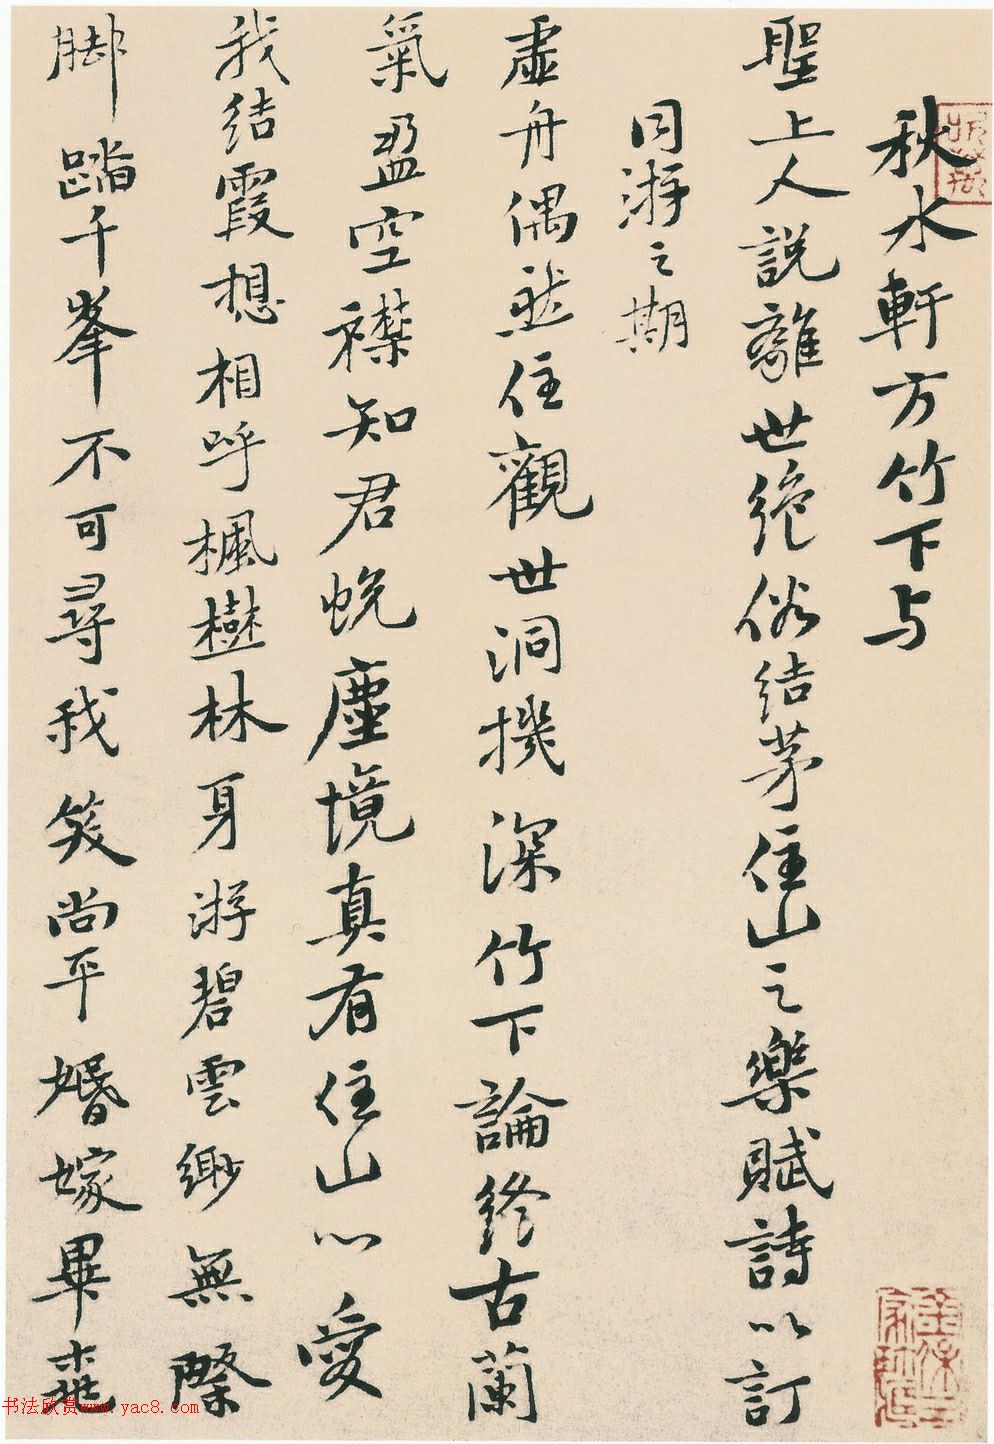 秋水軒方竹下与
聖上人説離世绝俗结茅住山之樂賦詩以訂
同游之期
虛舟偶然住觀世洞機深竹下論終古蘭
氣盈空襟知君蜕塵境真有住山心愛
我结霞想相呼楓樹林身游碧雲緲無際
脚踏千峯不可尋我笑尚平婚嫁畢垂
书法欣赏www.yac8.com